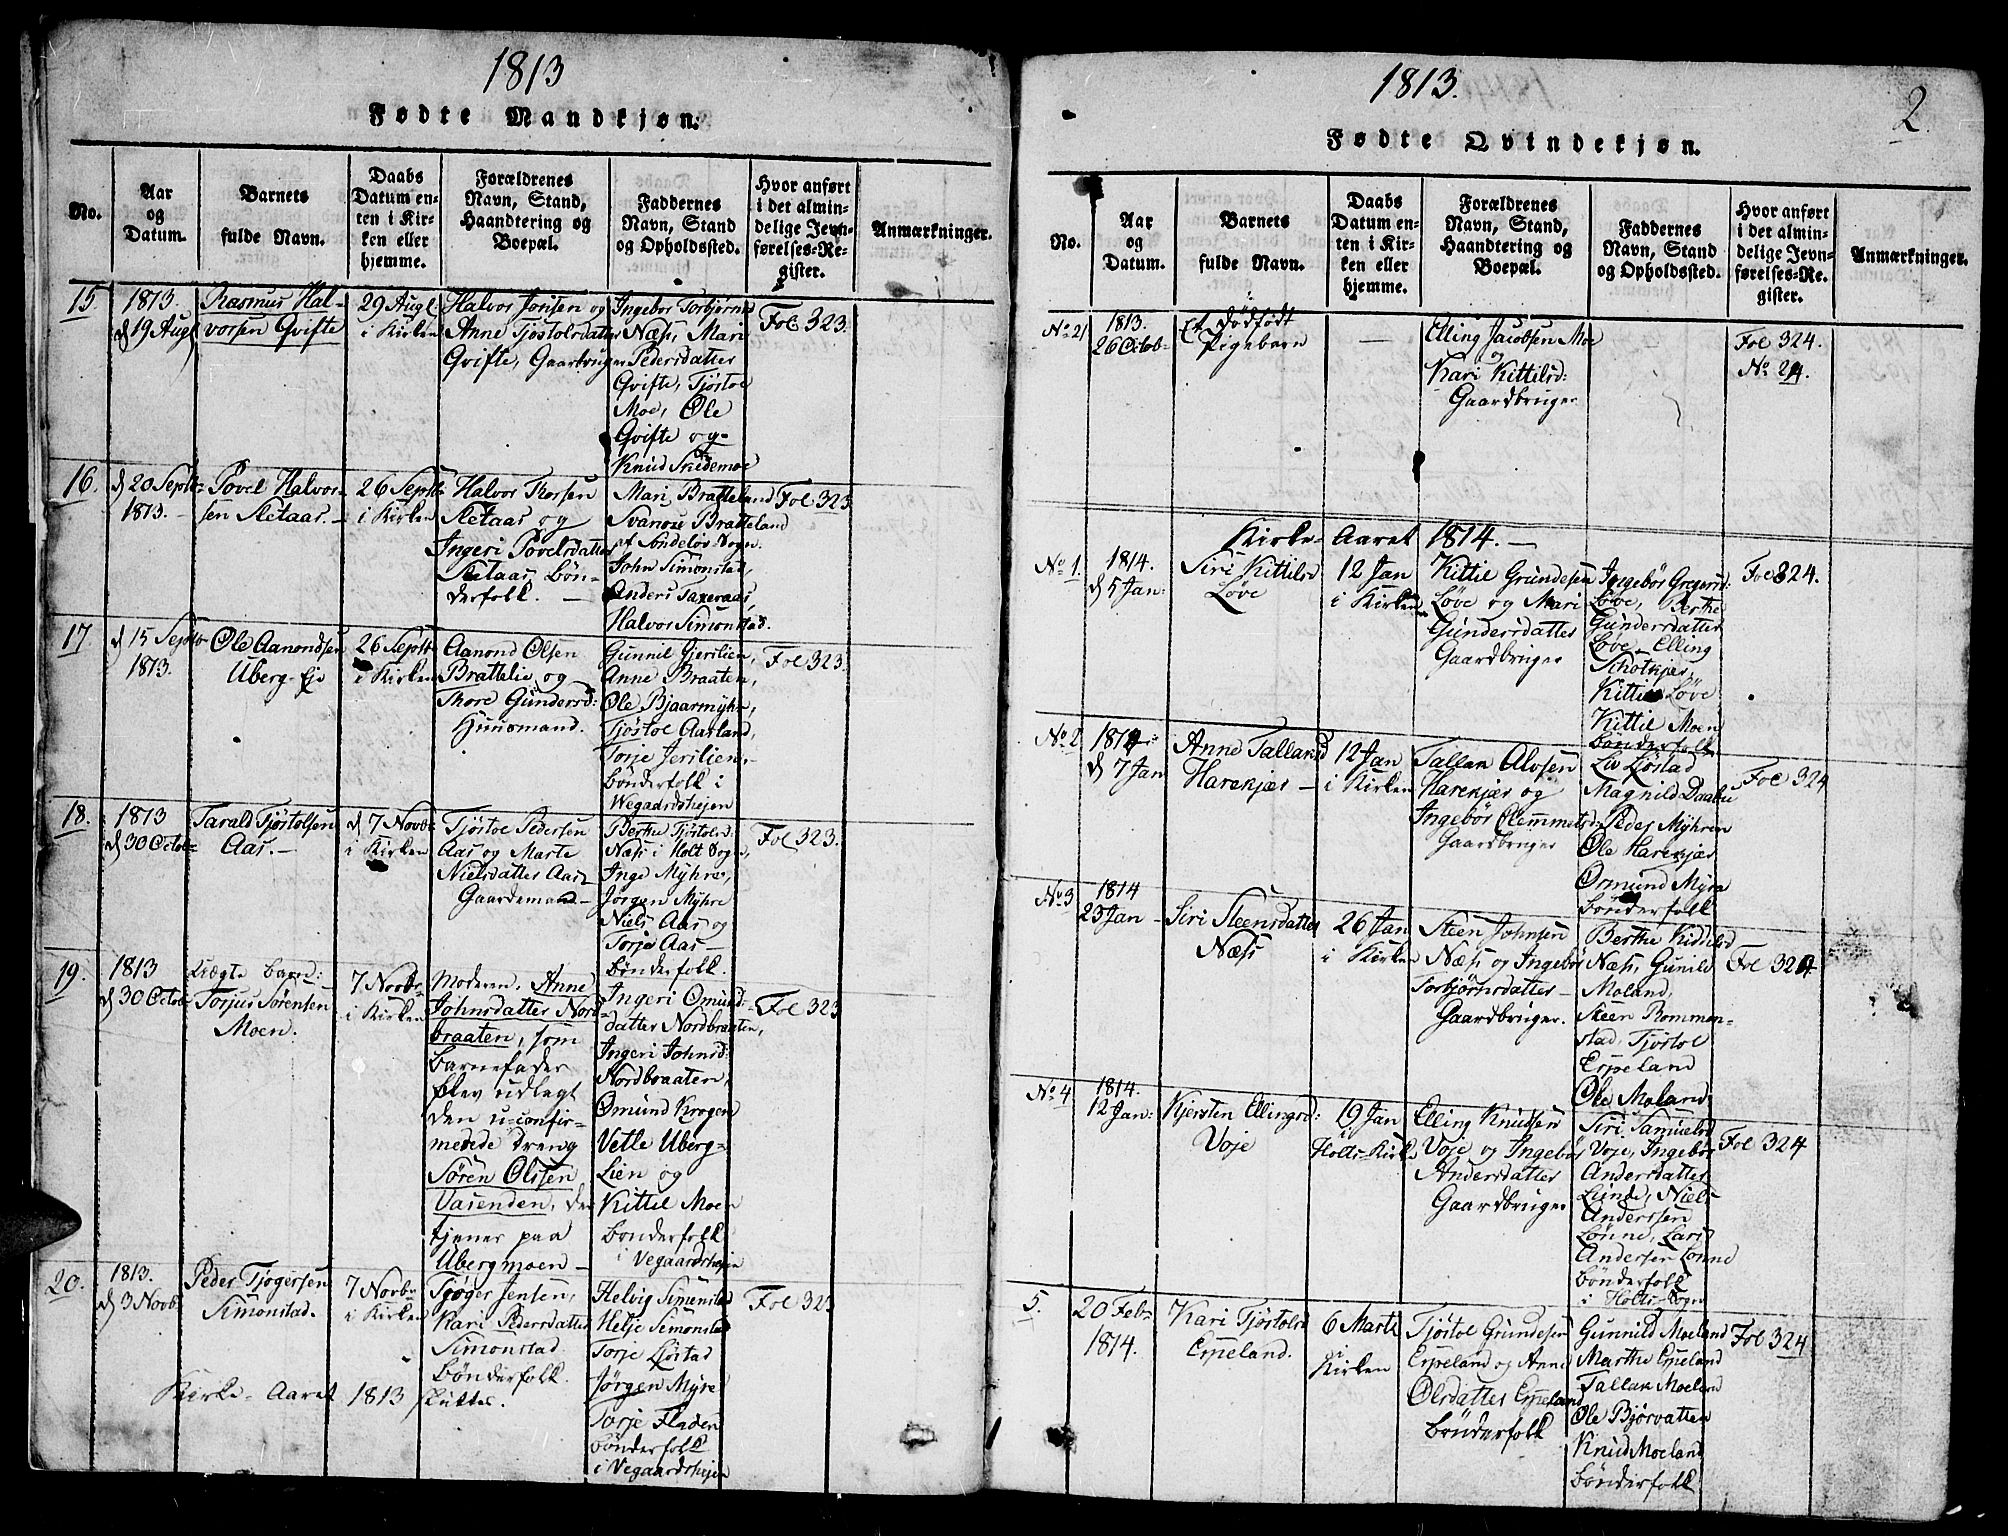 1813
Fødte Mandkjøn.
No.
Aar
og
Datum.
Barnets
fulde Navn.
Daabs
Datum en-
ten i Kir-
ken eller
hjemme.
Forældrenes
Navn, Stand,
Haandtering og
Boepæl.
Faddernes
Navn, Stand
og Opholdssted.
Hvor anført
i det almin-
delige Jevn-
førelses-Re-
gister.
Anmærkninger.
15.
1813.
d 19 Augs
Rasmus Hal-
vorsen Gvifte
29 Augs
i Kirken
Halvor Jonsen og
Anne Tjøstolsdatter
Gvifte, Gaardbruger
Ingebor Torbjørns
Næss, Mari
Pedersdatter
Gvifte, Tjøstol
Moe, Ole
Gvifte og
Knud Skidemoe
Fol 323.
16.
d 20 Septb
1813.
Povel Halvor-
sen Sletaas.
26 Septb
i Kirken
Halvor Thorsen
Sletaas og
Ingeri Povelsdatter
Sletaas, Bøn-
derfolk.
Mari Bratteland
Svanoug Bratteland
af Søndeløv Sogn.
John Simonstad,
Anders Taxeraas,
Halvor Simonstad.
Fol 323.
17.
d 15 Septb
1813.
Ole Aanondsen
Uberg-Eje
26 Septb
i Kirken
Aanond Olsen
Brattelie og
Thore Gundersd:
Huusmand.
Gunnil Gjerilien,
Anne Braaten,
Ole Bjaarmyhr,
Tjøstol Aasland,
Torje Jerilien,
Bønderfolk i
Wegaardshejen
Fol 323.
18.
1813
d 30 Octob
Tarald Tjøstolsen
Aas.
d 7 Novb
i Kirken
Tjøstol Pedersen
Aas og Marte
Nielsdatter Aas
Gaardemand
Berthe Tjøstolsd:
Næss i Holt Sogn,
Inge Myhre,
Jørgen Myhre
Niels Aas og
Torje Aas
Bønderfolk.
Fol 323.
19.
1813
d 30 Octob
Uægte Barn:
Torjus Sørensen
Moen.
7 Novbr
i Kirken
Moderen, Anne
Johnsdatter Nord-
braaten, som
Barnefader
blev udlagt
den u-confir-
merede Dreng
Søren Olsen
Vasenden, der
tjener paa
Ubergmoen
Ingeri Omund-
datter Nordbraaten,
Ingeri Johnsd:
Nordbraaten,
Omund Krogen
Vetle Uberg-
Lien og
Kittil Moen
Bonderfolk
i Vegaardshejen
Fol 323
20.
1813.
d 3 Novb
Peder Tjøgersen
Simonstad.
7 Novbr
i Kirken
Tjøger Jensen,
Kari Pedersdatter
Simonstad.
Bønderfolk.
Helvig Simonstad
Helje Simonstad
Torje Ljøstad
Jørgen Myre
Torje Fladen
Bønderfolk
i Vegaardshejen
Fol 323
Kirke-Aaret 1813 sluttes.
1813.
2.
Fødte Qvindekjøn.
No.
Aar
og
Datum.
Barnets
fulde Navn.
Daabs
Datum en-
ten i Kir-
ken eller
hjemme.
Forældrenes
Navn, Stand,
Haandtering og
Boepæl.
Faddernes
Navn, Stand
og Opholdssted.
Hvor anført
i det almin-
delige Jevn-
førelses-Re-
gister.
Anmærkninger.
No 21
1813.
26 Octob
Et dødfødt
Pigebarn
Elling Jacobsen Moe
og
Kari Kittilsd:
Gaardbruger
Fol 324.
No 24.
Kirke-Aaret 1814.
No 1.
1814.
d 5 Jan:
Siri Kittilsd
Løve
12 Jan
i Kirken
Kittil Grundesen
Løve og Mari
Gundersdatter
Gaardbruger
Ingebor Gregersd:
Løve, Berthe
Gundersdatter
Løve, Elling
Skotkjær,
Kittil Løve
Kittil Moen
Bønderfolk
Fol 324.
No 2
1814:
d 7 Jan
Anne Tallaksd
Harekjær
12 Jan
i Kirken
Tallak Alvsen
Harekjær og
Ingebor Clemmetsd:
Gaardbruger
Liv Ljøstad
Magnild Daabu
Peder Myhren
Ole Harekjær
Ormund Myra
Bønderfolk
Fol 324
No 3
1814
23 Jan
Siri Steensdatter
Næss
26 Jan
i Kirken
Steen Johnsen
Næss og Ingebor
Torbjørnsdatter
Gaardbruger.
Berthe Kiddelsd
Næss, Gunild
Moland,
Steen Rommen-
stad, Tjøstol
Erpeland
Ole Moland
Fol 324
No 4
1814.
12 Jan:
Kjersten Ellingsd:
Voje
19 Jan
i
Holts Kirke
Elling Knudsen
Voje og Ingebor
Andersdatter
Gaardbruger
Siri Samuelsd
Voje, Ingebor
Andersdatter
Lunde, Niels
Anderssen
Lønne, Lars
Andersen Lønne
Bønderfolk
i Holts-Sogn
Fol 324
5.
20 Feb
1814.
Kari Tjøstolsd
Erpeland.
6 Marti
i
Kirken
Tjøstol Grundesen
Erpeland og Anne
Olsdatter Erpeland
Bønderfolk
Gunnild Moeland
Marthe Erpeland
Tallak Moeland
Ole Bjørvatten
Knud Moeland
Bønderfolk
Fol 324